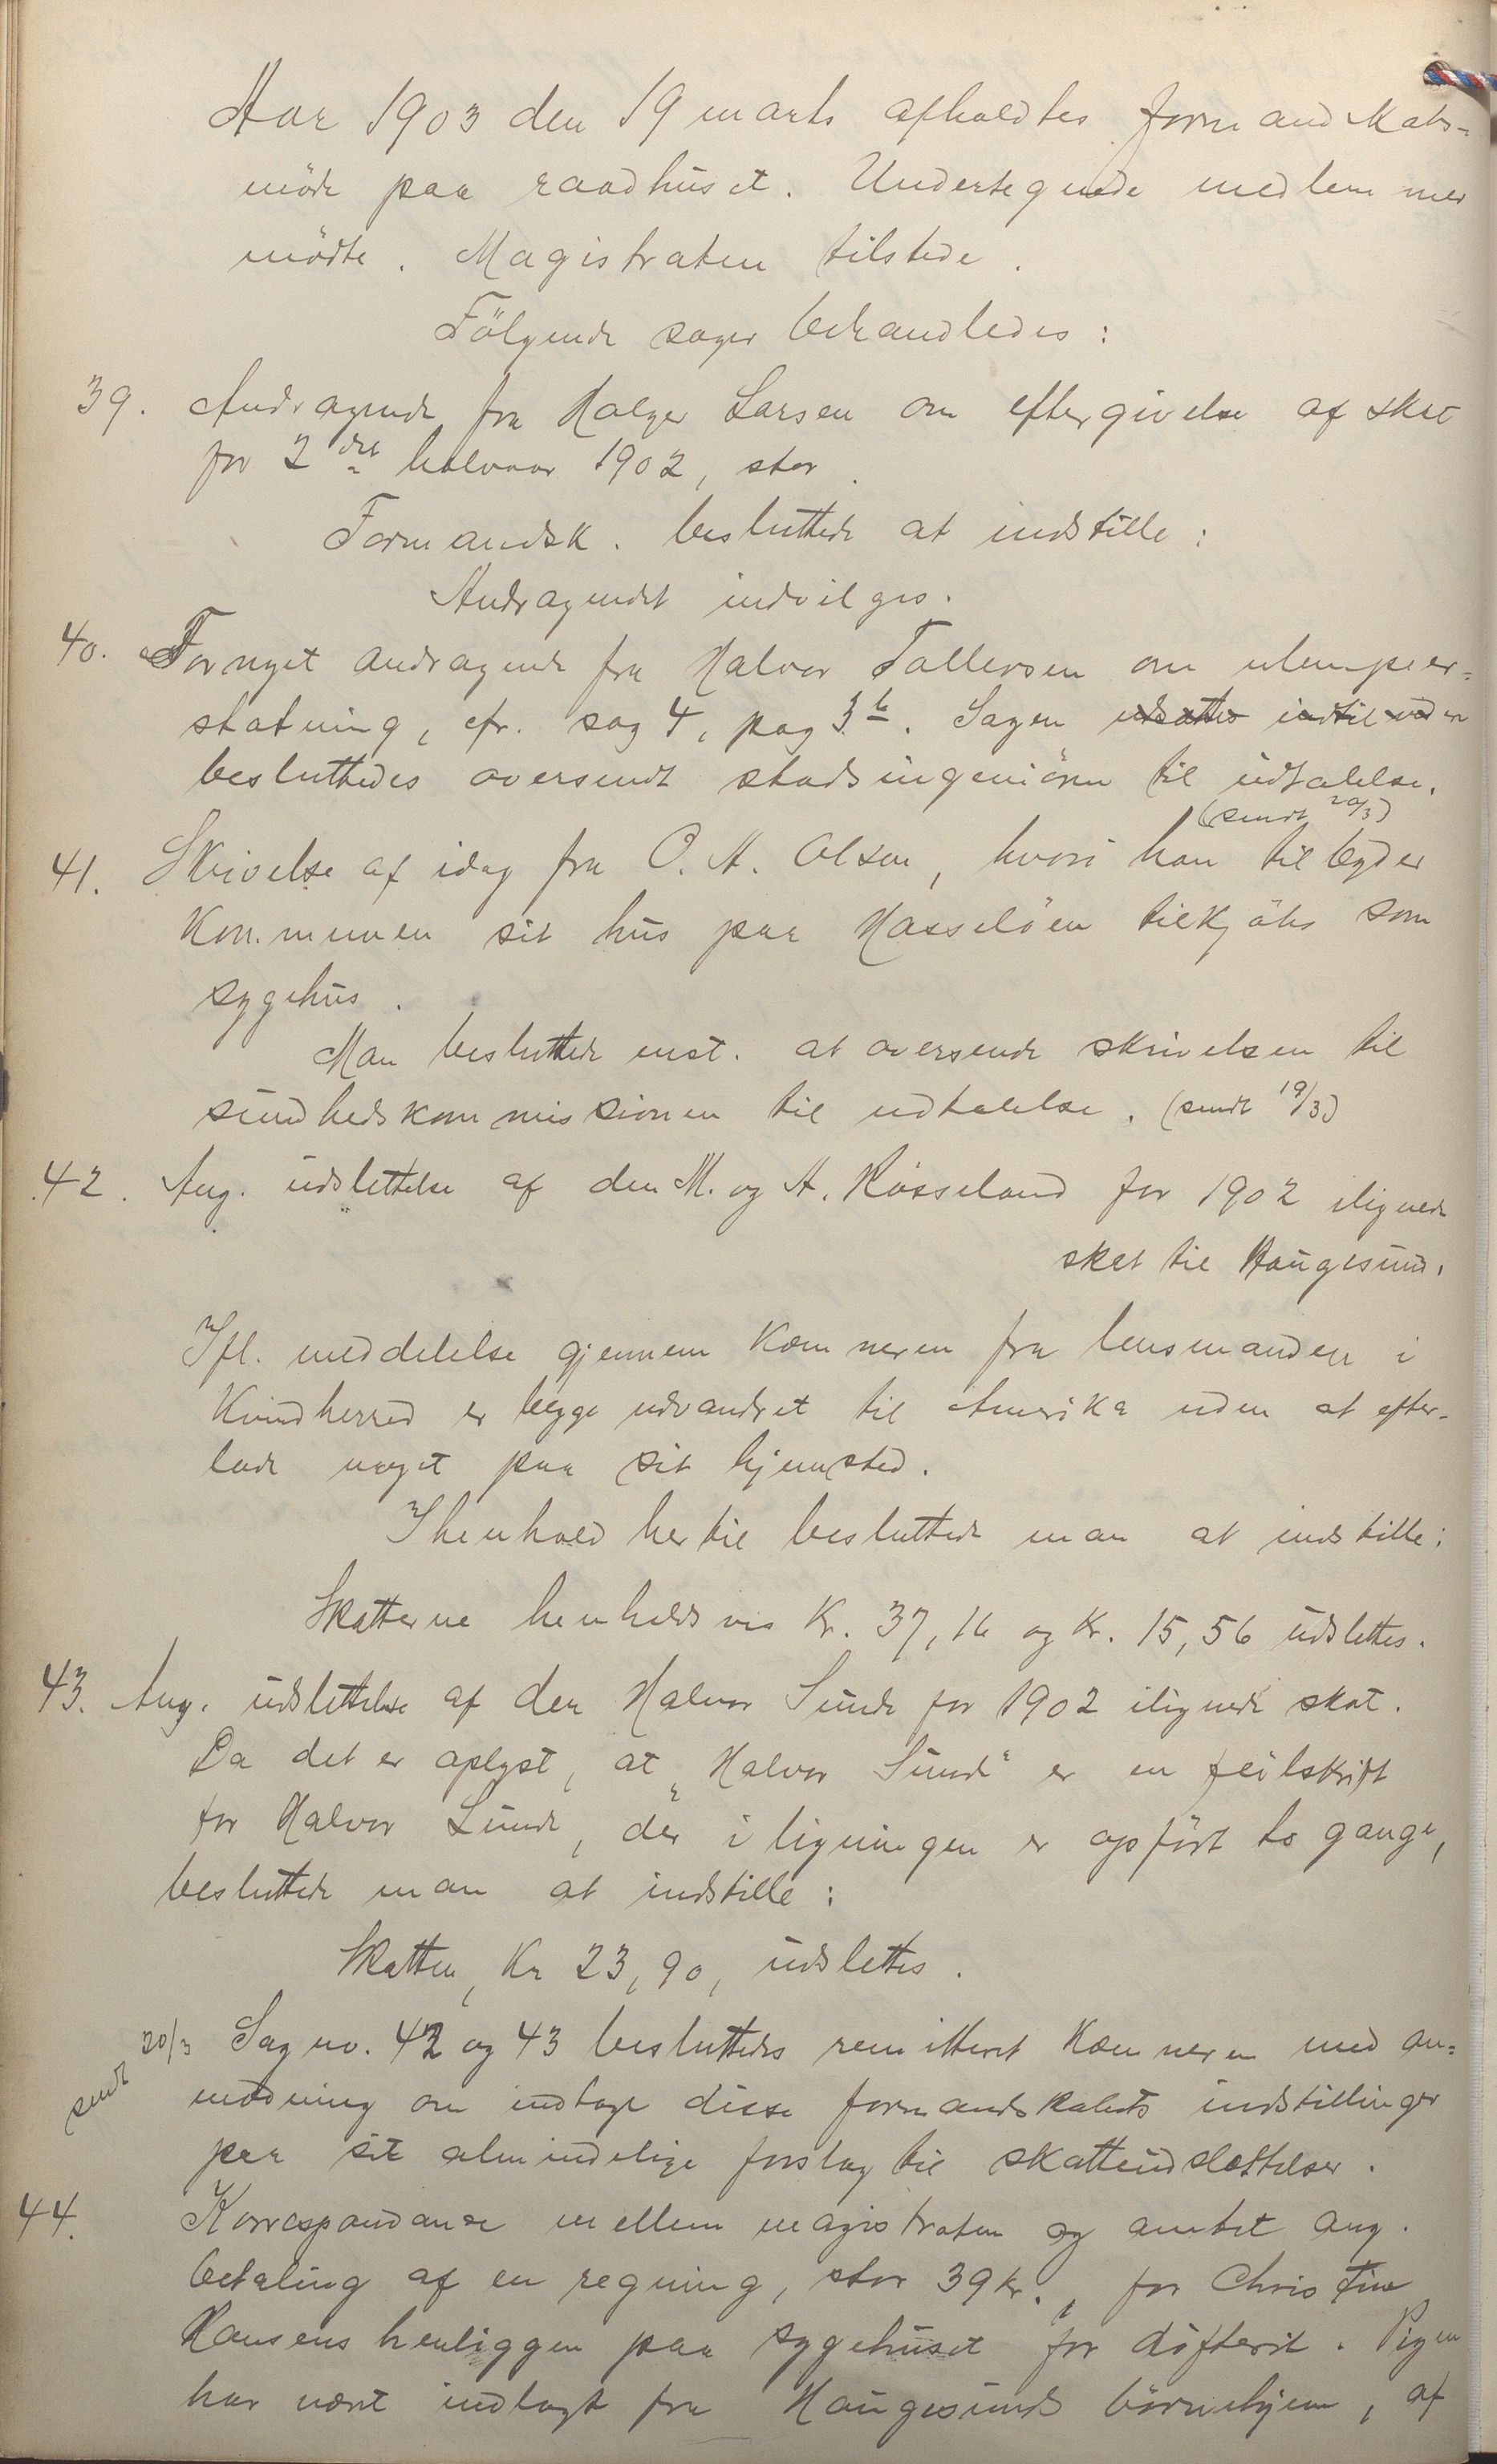 Aar 1903 den 19 marts afholdtes formandskabs-
möde paa raadhuset. Undertegnede medlemmer
mödte. Magistraten tilstede.
Fölgende sager behandledes:
39. Andragende fra Holger Larsen om eftergivelse af skat
for 2det halvaar 1902, stor .
Formandsk. besluttede at indstille:
Andragendet indvilges.
40. Fornyet andragende fra Halvor Tallevsen om ulempeer-
statning, cfr. sag 4, pag 3b. Sagen udsattes indtil videre
besluttedes oversendt stadsingeniören til udtalelse.
(sendt 20/3)
41. Skrivelse af idag fra O. A. Olsen, hvori han tilbyder
Kommunen sit hus paa Hasseløen tilkjöbs som
sygehus.
Man besluttede enst. at oversende skrivelsen til
sundhedskommissionen til udtalelse. (sendt 19/3)
42. Ang. udslettelse af den M. og A. Røsseland for 1902 ilignede
skat til Haugesund.
Ifl. meddelelse gjennem Kæmneren fra lensmanden i
Kvindherred er begge udvandret til Amerika uden at efter-
lade noget paa sit hjemsted.
I henhold hertil besluttede man at indstille:
Skatterne henholdsvis Kr. 37,16 og Kr. 15,56 udslettes.
43. Ang. udslettelse af den Halvor Sunde for 1902 ilignede skat.
Da det er oplyst, at "Halvor Sunde" er en feilskrift
for Halvor Lunde, der i ligningen er opfört to gange,
besluttede man at indstille:
Skatten, Kr 23,90, udslettes.
sendt 20/3 Sag no. 42 og 43 besluttedes remitteret Kæmneren med an-
modning om indtage disse formandskabets indstillinger
paa sit almindelige forslag til skatteudslettelser.
44. Korrespondanse mellem magistraten og amtet ang.
betaling af en regning, stor 39 kr., for Christine
Hansens henliggen paa sygehuset for difterit. Pigen
har været indlagt fra Haugesunds börnehjem, af